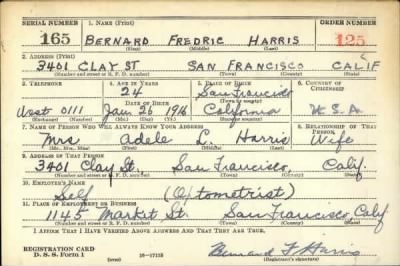 SERIAL NUMBER 1. NAME (Print) ORDER NUMBER
165 BERNARD FREDRIC HARRIS 125
(First) (Middle) (Last)
2. ADDRESS (Print)
3401 CLAY ST SAN FRANCISCO CALIF
(Number and street or R. F. D. number) (Town) (County) (State)
3. TELEPHONE 4. AGE IN YEARS 5. PLACE OF BIRTH 6. COUNTRY OF CITIZENSHIP
24 San Francisco
DATE OF BIRTH (Town or county)
West 0111 Jan 26 1916 California U.S.A.
(Exchange) (Number) (Mo.) (Day) (Yr.) (State or country)
7. NAME OF PERSON WHO WILL ALWAYS KNOW YOUR ADDRESS 8. RELATIONSHIP OF THAT PERSON
Mrs. Adele L. Harris Wife
(Mr., Mrs., Miss) (First) (Middle) (Last)
9. ADDRESS OF THAT PERSON
3401 Clay St. San Francisco, Calif.
(Number and street or R. F. D. number) (Town) (County) (State)
10. EMPLOYER'S NAME
Self (Optometrist)
11. PLACE OF EMPLOYMENT OR BUSINESS
1145 Market St. San Francisco, Calif
(Number and street or R. F. D. number) (Town) (County) (State)
I AFFIRM THAT I HAVE VERIFIED ABOVE ANSWERS AND THAT THEY ARE TRUE.
REGISTRATION CARD
D. S. S. Form 1 (over) 16-17125 Bernard F Harris
(Registrant's signature)